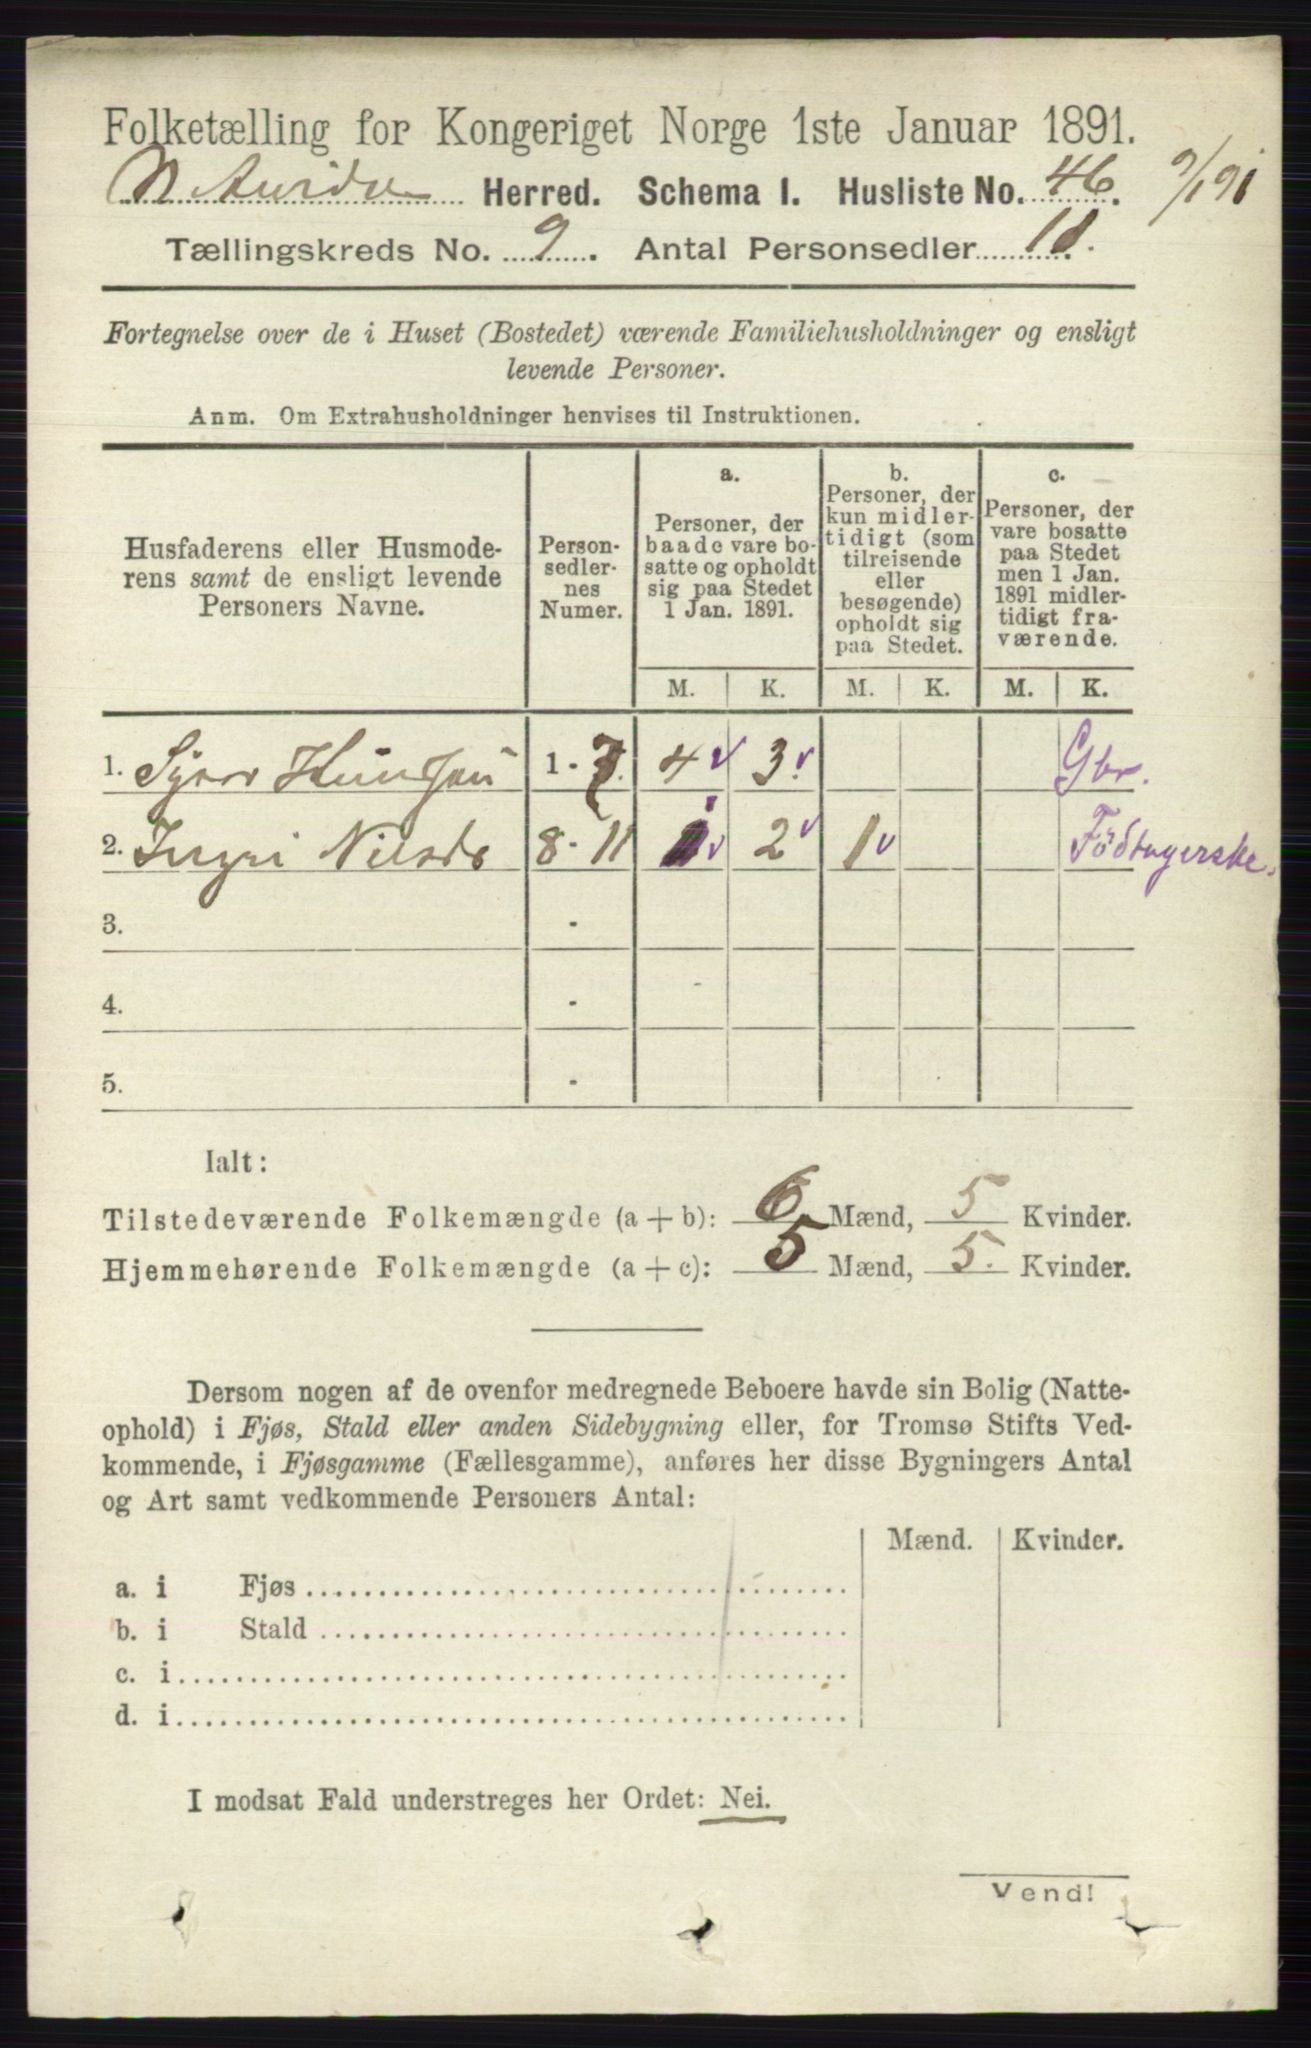 Folketælling for Kongeriget Norge 1ste Januar 1891.
Herred. Schema I. Husliste No. 46.
Tællingskreds No. 9. Antal Personsedler 11.
Fortegnelse over de i Huset (Bostedet) værende Familiehusholdninger og ensligt
levende Personer.
Anm. Om Extrahusholdninger henvises til Instruktionen.
Husfaderens eller Husmode-
rens samt de ensligt levende
Personers Navne.
Person-
sedler-
nes
Numer.
a.
Personer, der
baade vare bo-
satte og opholdt
sig paa Stedet
1 Jan. 1891.
b.
Personer, der
kun midler-
tidigt (som
tilreisende
eller
besøgende)
opholdt sig
paa Stedet.
c.
Personer, der
vare bosatte
paa Stedet
men 1 Jan.
1891 midler-
tidigt fra-
værende.
M. K. M. K. M. K.
1. 1 - 7. 4 3. Gbr.
2. Ingri Nilsd. 8 - 11 1 2 1 Födtagerske.
3. -
4. -
5. -
Ialt:
Tilstedeværende Folkemængde (a + b): 6 Mænd, 5 Kvinder.
Hjemmehørende Folkemængde (a + c): 5 Mænd, 5. Kvinder.
Dersom nogen af de ovenfor medregnede Beboere havde sin Bolig (Natte-
ophold) i Fjøs, Stald eller anden Sidebygning eller, for Tromsø Stifts Ved-
kommende, i Fjøsgamme (Fællesgamme), anføres her disse Bygningers Antal
og Art samt vedkommende Personers Antal:
Mænd. Kvinder.
a. i Fjøs
b. i Stald
c. i
d. i
I modsat Fald understreges her Ordet: Nei.
Vend!